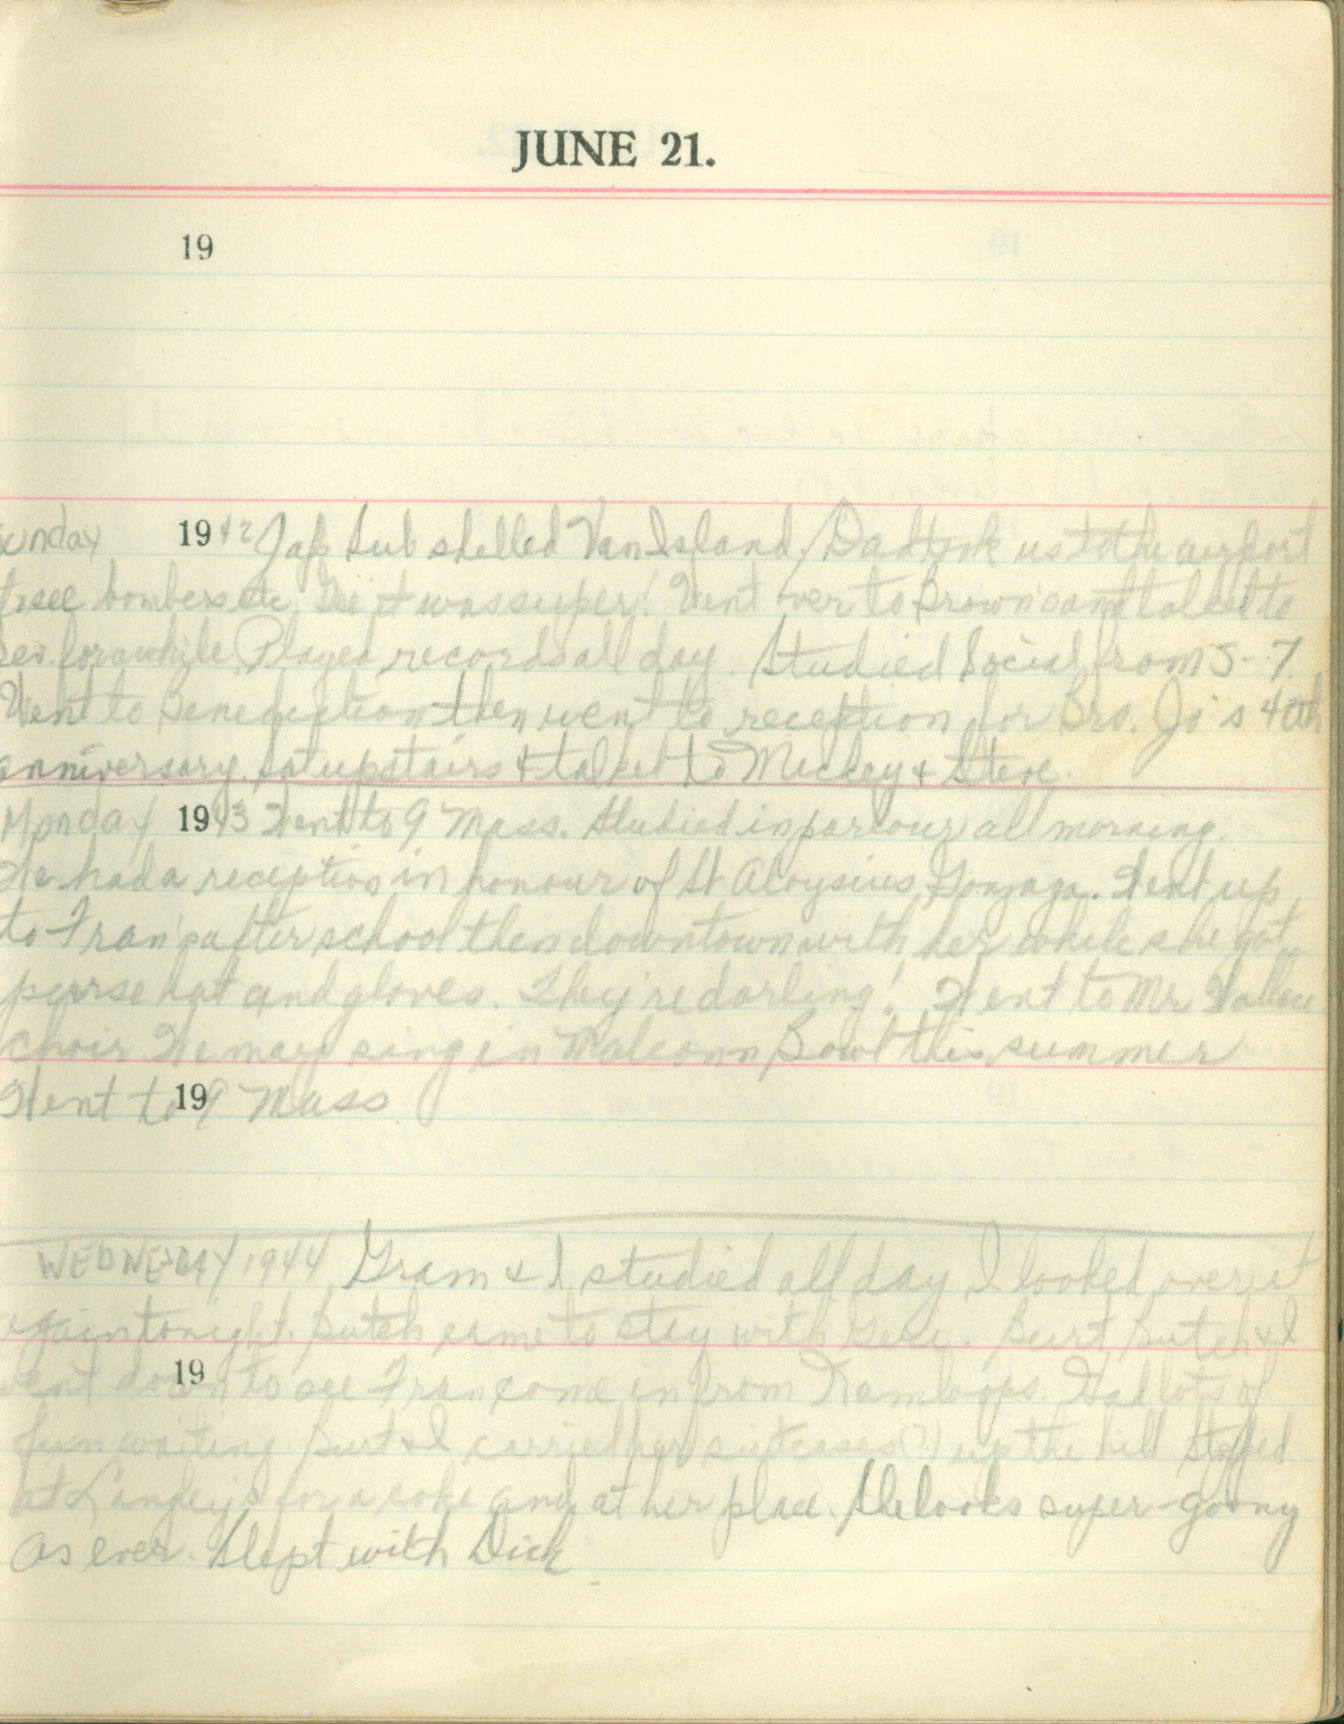 JUNE 21.
19
unday 1942 Jap Sub shelled Van Island. Dad took us to the airport
to see bombers etc. Gee it was super! Went over to Brown's and talked to
for awhile. Played records all day. Studied Social from 5-7.
Went to Benediction then went to reception for Bro. Jo's 40th
anniversary. Sat upstairs & talked to Mickey & Steve.
Monday 1943 Went to 9 Mass. Studied in parlour all morning.
We had a reception in honour of St Aloysius Gonzaga. Went up
to Fran's after school then downtown with her while she got
purse hat and gloves. They're darling! Went to Mr Wallace
choir We may sing in Malconn Bowl this summer
Went to 9 Mass
19
WEDNESDAY 1944 Gram & I studied all day I looked over it
again tonight. Butch came to stay with Gene. Burt Butch & I
went down to see Fran come in from Kamloops. Had lots of
19
fun waiting. Burt & I carried her suitcases (?) up the hill Stopped
at Langley's for a coke and at her place. She looks super-goony
as ever. Slept with Dick